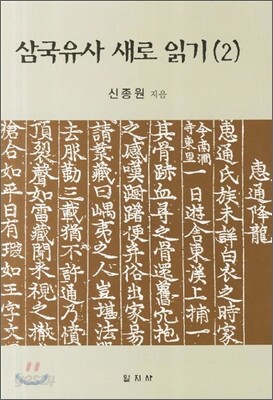 삼국유사 새로 읽기 (2)
신종원 지음
惠通降龍
惠通氏族未詳白衣之時家
今南澗
寺東里
一日遊舍東溪上捕
其骨跡血尋之骨還舊穴抱
之感嘆躕躇便弃俗出家易
請業藏曰嵎夷之人豈堪法
去服勤三載猶不許通乃憤
頂裂聲如雷藏聞来視之撫
瘡合如平日有瑕如王字文
일지사